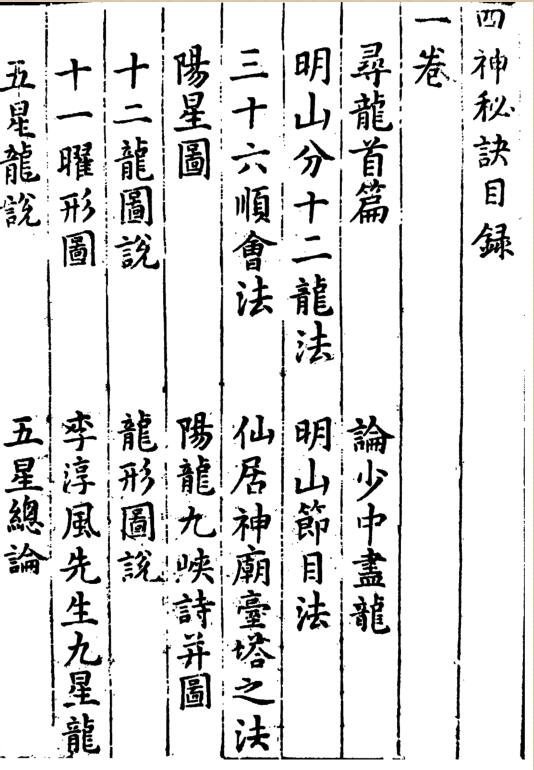 四神秘訣目録
一卷
尋龍首篇　論少中盡龍
明山分十二龍法　明山節目法
三十六順會法　仙居神廟臺塔之法
陽星圖　陽龍九峽詩并圖
十二龍圖說　龍形圖說
十一曜形圖　李淳風先生九星龍
五星龍說　五星總論